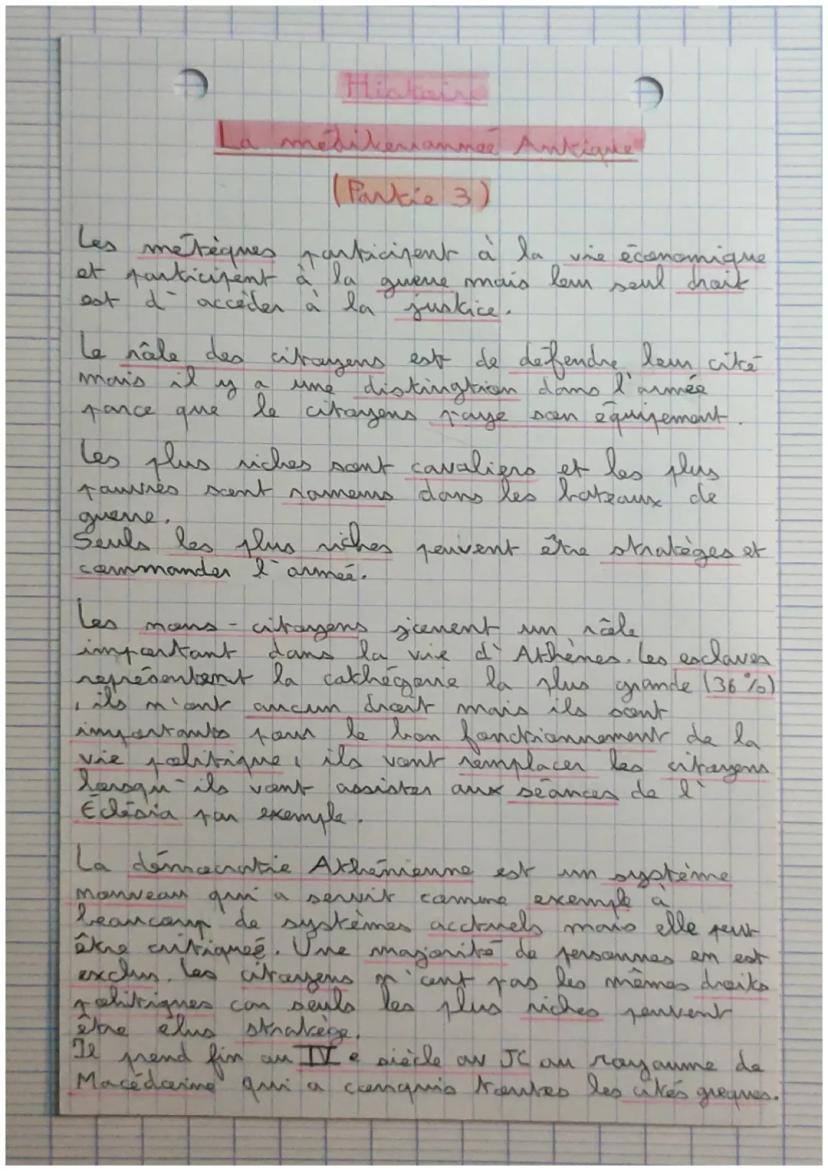 Histoire
La méditerranneé Antique
(Partie 3)
Les métèques participent à la vie économique
et participent à la guerre mais leur seul droit
est d'accéder à la justice.
Le rôle des citoyens est de défendre leur cité
mais il y a une distingtion dans l'armée
parce que le citoyens paye son équipement.
Les plus riches sont cavaliers et les plus
pauvres sont rameurs dans les bateaux de
guerre.
Seuls les plus riches peuvent être stratèges et
commander l'armeé.
Les mons-citoyens jouent un rôle
important dans la vie d'Athènes. Les esclaves
représentent la cathégorie la plus grande (36%)
, ils n'ont aucun droit mais ils sont
importants pour le bon fonctionnement de la
vie politique, ils vont remplacer les citoyens
lorsqu'ils vont assister aux séances de l'
Eclésia par exemple.
La démocratie Athénienne est un système
nouveau qui a servit comme exemple à
beaucoup de systèmes acctuels mais elle peut
être critiqueé. Une majorité de personnes en est
exclus. Les citoyens n'ont pas les mêmes droits
politiques car seuls les plus riches peuvent
être élus stratège.
Il prend fin au IVe siècle av JC au royaume de
Macédoine qui a conquis toutes les cités greques.